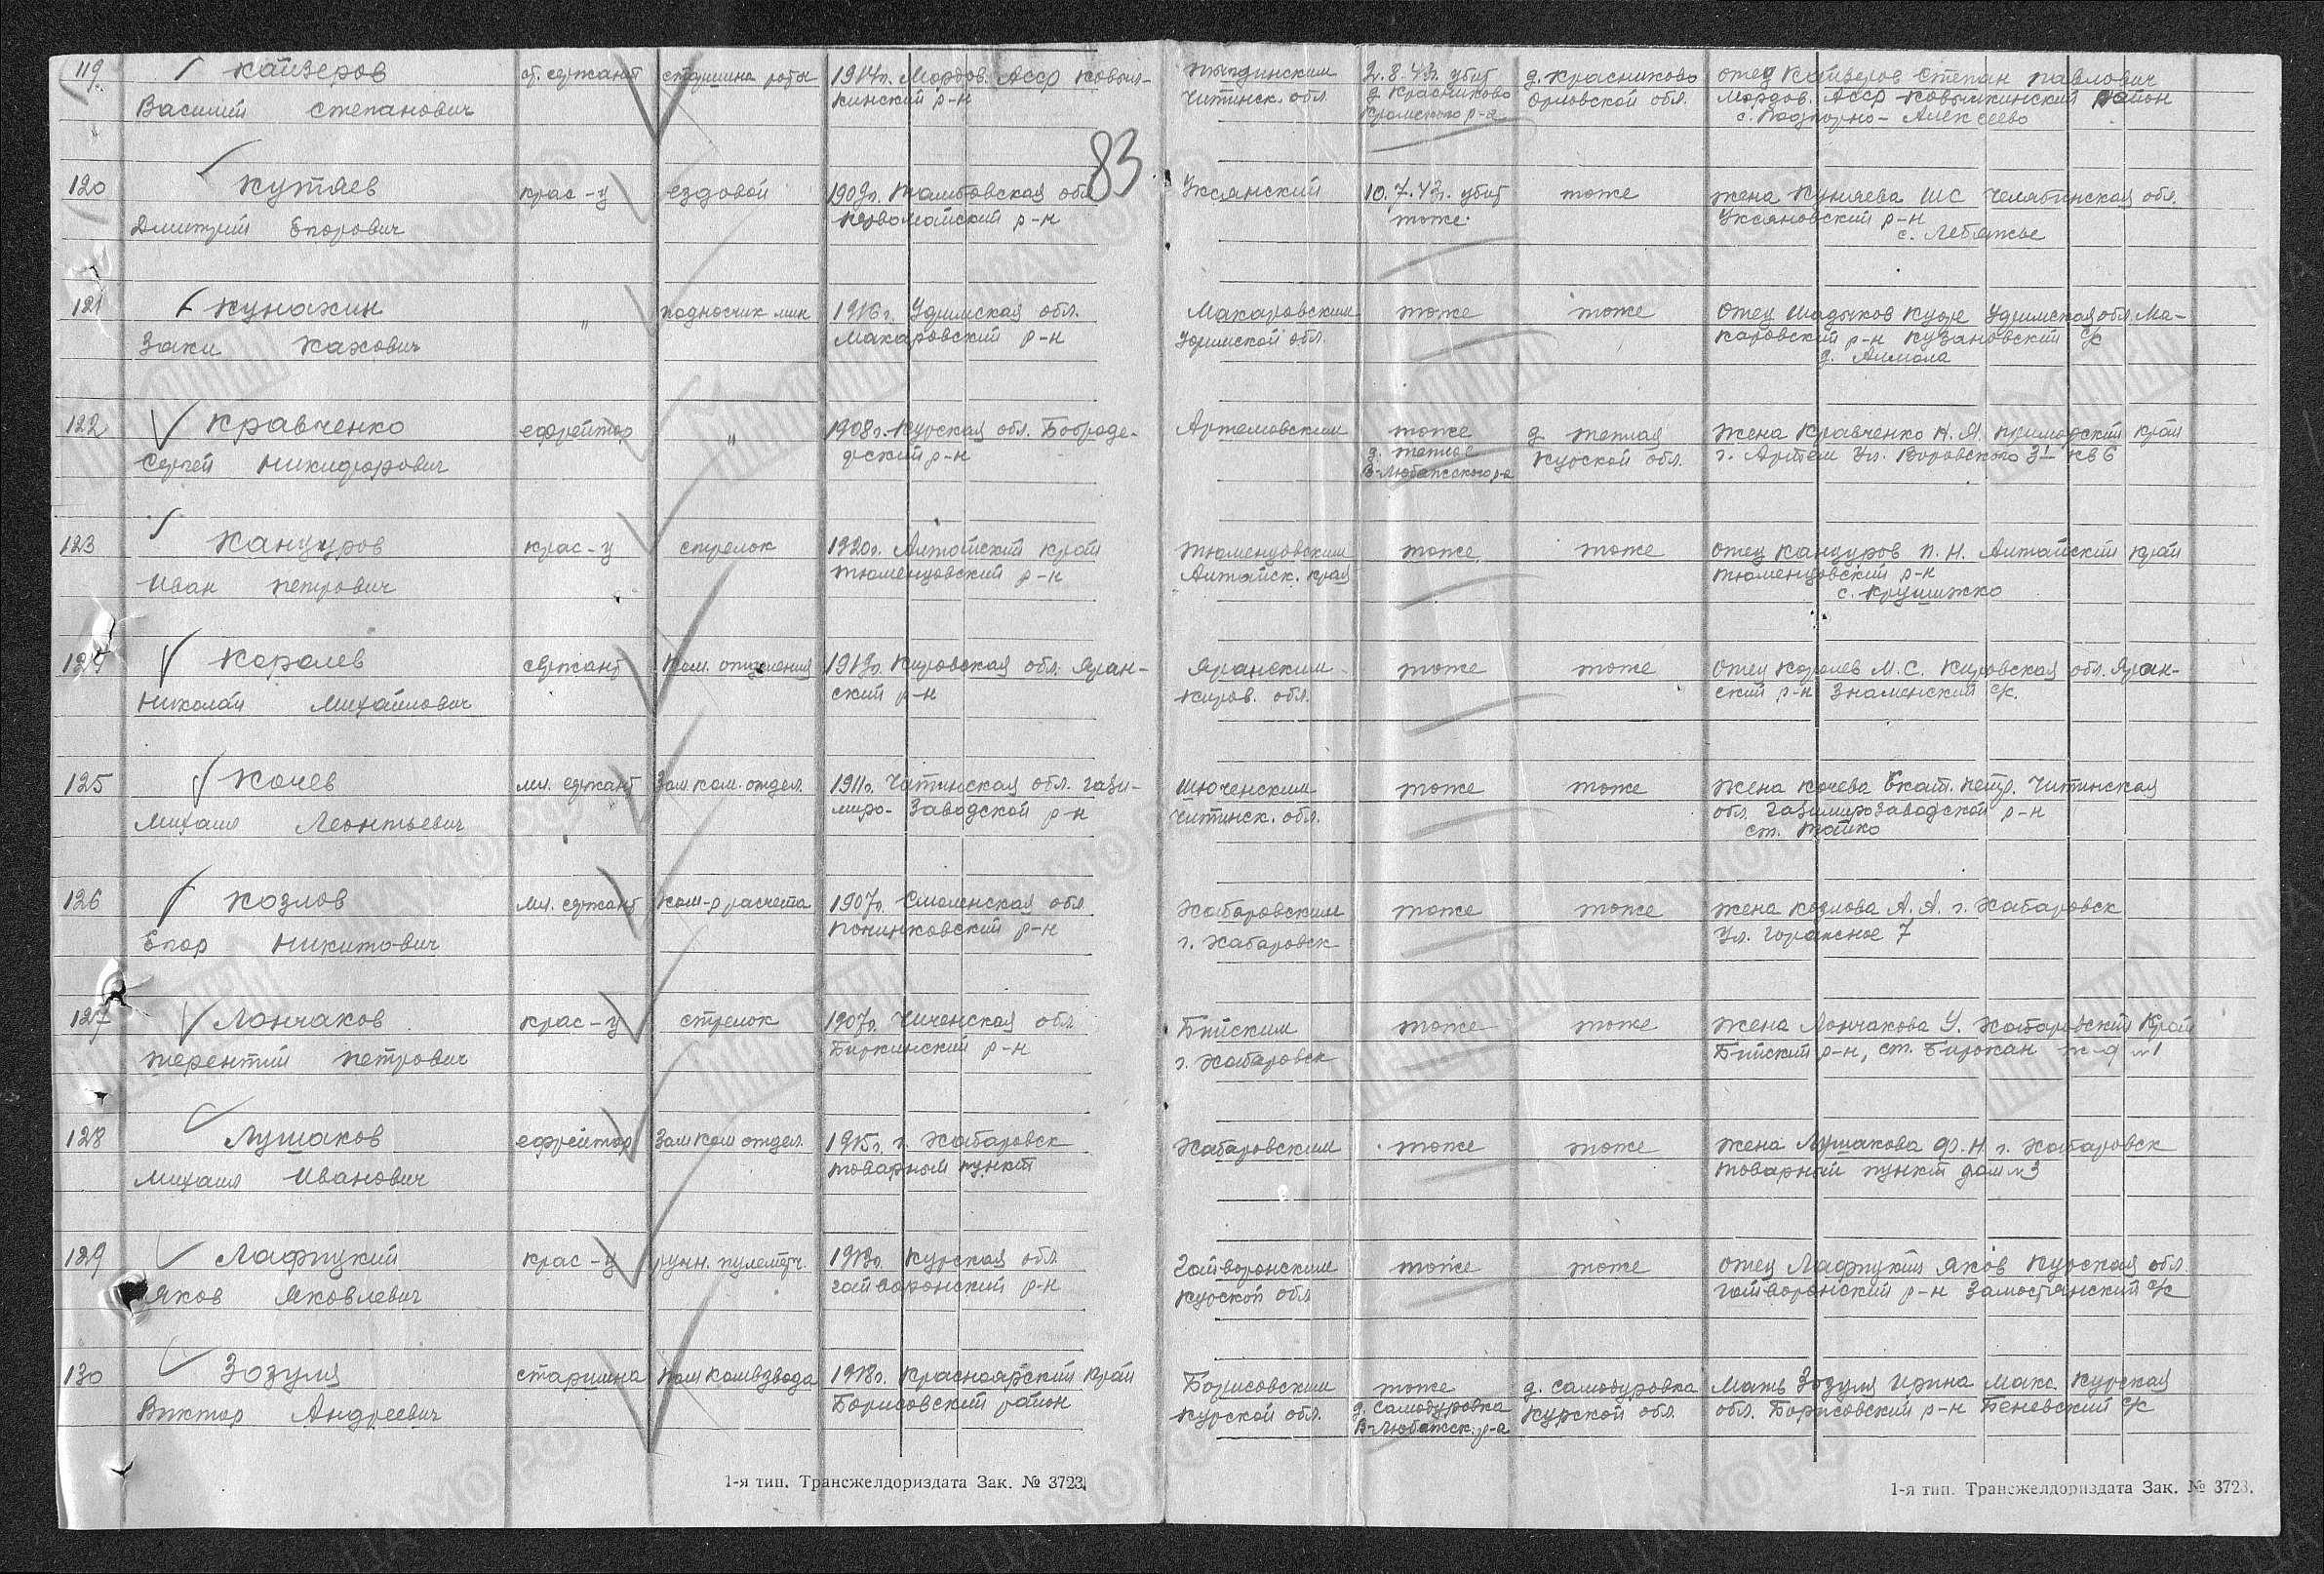 83
119 Кайзеров ст. сержант старшина роты 1914г. Мордов. АССР Ковыл- 2.8.43г. убит д. Красниково отец Кайзеров Степан Павлович
Василий Степанович кинский р-н Читинск. обл. д. Красниково Орловской обл. Мордов. АССР Ковылкинский район
Кромского р-а с. Подгорно-Алексеево
120 Кутяев крас-ц ездовой 1909г. Тамбовская обл Уксянский 10.7.43г. убит тоже жена Куняева ШС Челябинская обл.
Дмитрий Егорович Первомайский р-н тоже Уксяновский р-н
с. Лебяжье
121 Кунакин " подносчик мин 1916г. Уфимская обл. Макаровским тоже тоже Отец Кудже Уфимская обл. Ма-
Заки Кахович Макаровский р-н Уфимской обл. каровский р-н Кузановский с/с
122 Кравченко ефрейтор " 1908г. Курская обл. Артемовским тоже д. Теплая Жена Кравченко Н. Я. Приморский край
Сергей Никифорович р-н д. Теплое Курской обл. г. Артем ул. Воровского 31 кв 6
В-Любажского р-а
123 Канцуров крас-ц стрелок 1920г. Алтайский край Тюменцовским тоже тоже отец Канцуров П. Н. Алтайский край
Иван Петрович Тюменцовский р-н Алтайск. края Тюменцовский р-н
124 Королев сержант Ком. отделения 1919г. Кировская обл. Яран- Яранским тоже тоже Отец Королев М. С. Кировская обл. Яран-
Николай Михайлович ский р-н Киров. обл. ский р-н Знаменский с/с.
125 Кочев мл. сержант Зам. ком. отдел. 1911г. Читинская обл. Гази- Читинск. обл. тоже тоже Жена Кочева Екат. Петр. Читинская
Михаил Леонтьевич миро-Заводской р-н обл. Газимирозаводской р-н
126 Козлов мл. сержант Ком-р расчета 1907г. Смоленская обл Хабаровским тоже тоже жена Козлова А. А. г. Хабаровск
Егор Никитович Починковский р-н г. Хабаровск
127 Лончаков крас-ц стрелок 1907г. обл. Бийским тоже тоже жена Лончакова У. Хабаровский край
Терентий Петрович Биркинский р-н г. Хабаровск Бийский р-н, ст. Бирокан
128 Лушаков ефрейтор Зам ком отдел. 1915г. г. Хабаровск Хабаровским тоже тоже жена Лушакова Ф. Н. г. Хабаровск
Михаил Иванович товарный пункт товарный пункт дом №3
129 Лафицкий крас-ц ручн. пулеметч. 1913г. Курская обл. Гайворонским тоже тоже отец Лафицкий Яков Курская обл.
Яков Яковлевич Гайворонский р-н Курской обл Гайворонский р-н Замостянский с/с
130 Зозуля старшина Пом комвзвода 1918г. Красноярский край Борисовским тоже д. Самодуровка Мать Зозуля Ирина Макс. Курская
Виктор Андреевич Борисовский район Курской обл. д. Самодуровка Курской обл. обл. Борисовский р-н с/с
В-Любажск. р-а
1-я тип. Трансжелдориздата Зак. № 3723.
1-я тип. Трансжелдориздата Зак. № 3723.